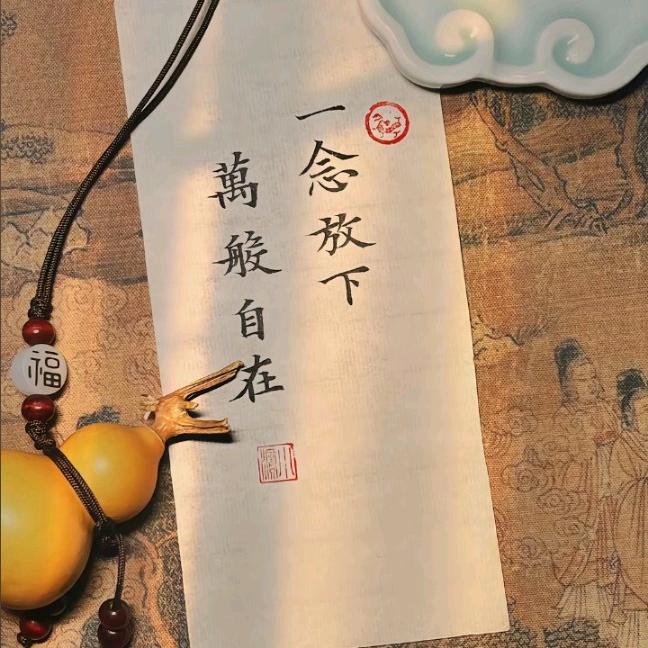 一念放下
萬般自在
福